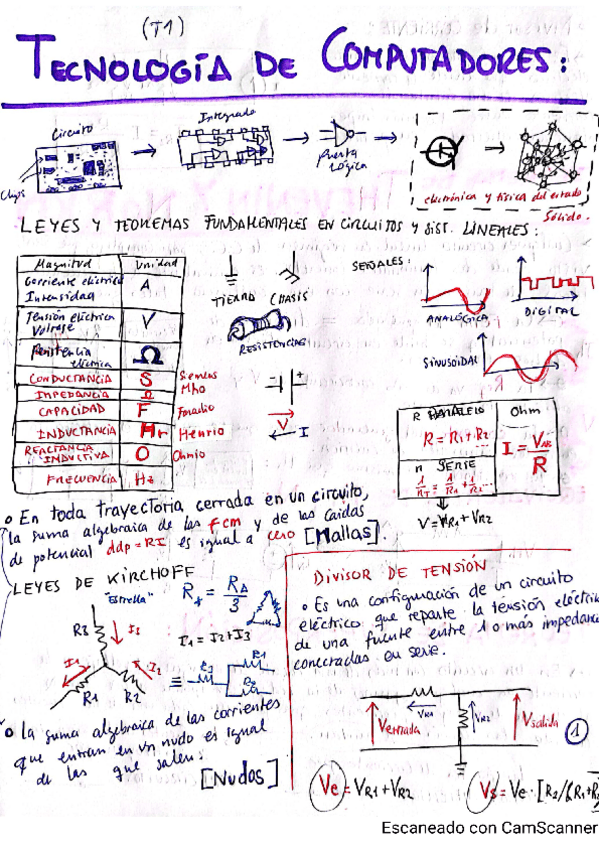 (T1)
TECNOLOGÍA DE COMPUTADORES:
Circuito
Chips
Integrado
Puerta
Lógica
electrónica y física del estado
Sólido.
LEYES Y TEOREMAS FUNDAMENTALES EN CIRCUITOS Y DIST. LINEALES:
Magnitud Unidad
Corriente eléctrica A
Intensidad
Tensión eléctrica V
Voltaje
Resistencia Ω
eléctrica
CONDUCTANCIA S Siemens
Mho
IMPEDANCIA Ω
CAPACIDAD F Faradio
INDUCTANCIA Hr Henrio
REACTANCIA O Ohmio
INDUCTIVA
FRECUENCIA Hz
TIERRA CHASIS
RESISTENCIAS
+
V
I
SEÑALES:
ANALÓGICA
DIGITAL
SINUSOIDAL
R PARALELO
R = R1 + R2
n SERIE
1/RT = 1/R1 + 1/R2 ...
Ohm
I = VAB/R
V = VR1 + VR2
• En toda trayectoria cerrada en un circuito,
la suma algebraica de las fcm y de las caídas
de potencial ddp = RI es igual a cero [Mallas].
LEYES DE KIRCHOFF
"Estrella"
R⋆ = RΔ/3
I1 = I2 + I3
R3 I3
I1 I2
R1 R2
≡
R3 R1
R2
• la suma algebraica de las corrientes
que entran en un nudo es igual
de las que salen.
[Nudos]
DIVISOR DE TENSIÓN
• Es una configuración de un circuito
eléctrico que reparte la tensión eléctrica
de una fuente entre 1 o más impedanci
conectadas en serie.
VR1
Ventrada VR2 Vsalida
1
Ve = VR1 + VR2
Vs = Ve · [R2/(R1+R
Escaneado con CamScanner